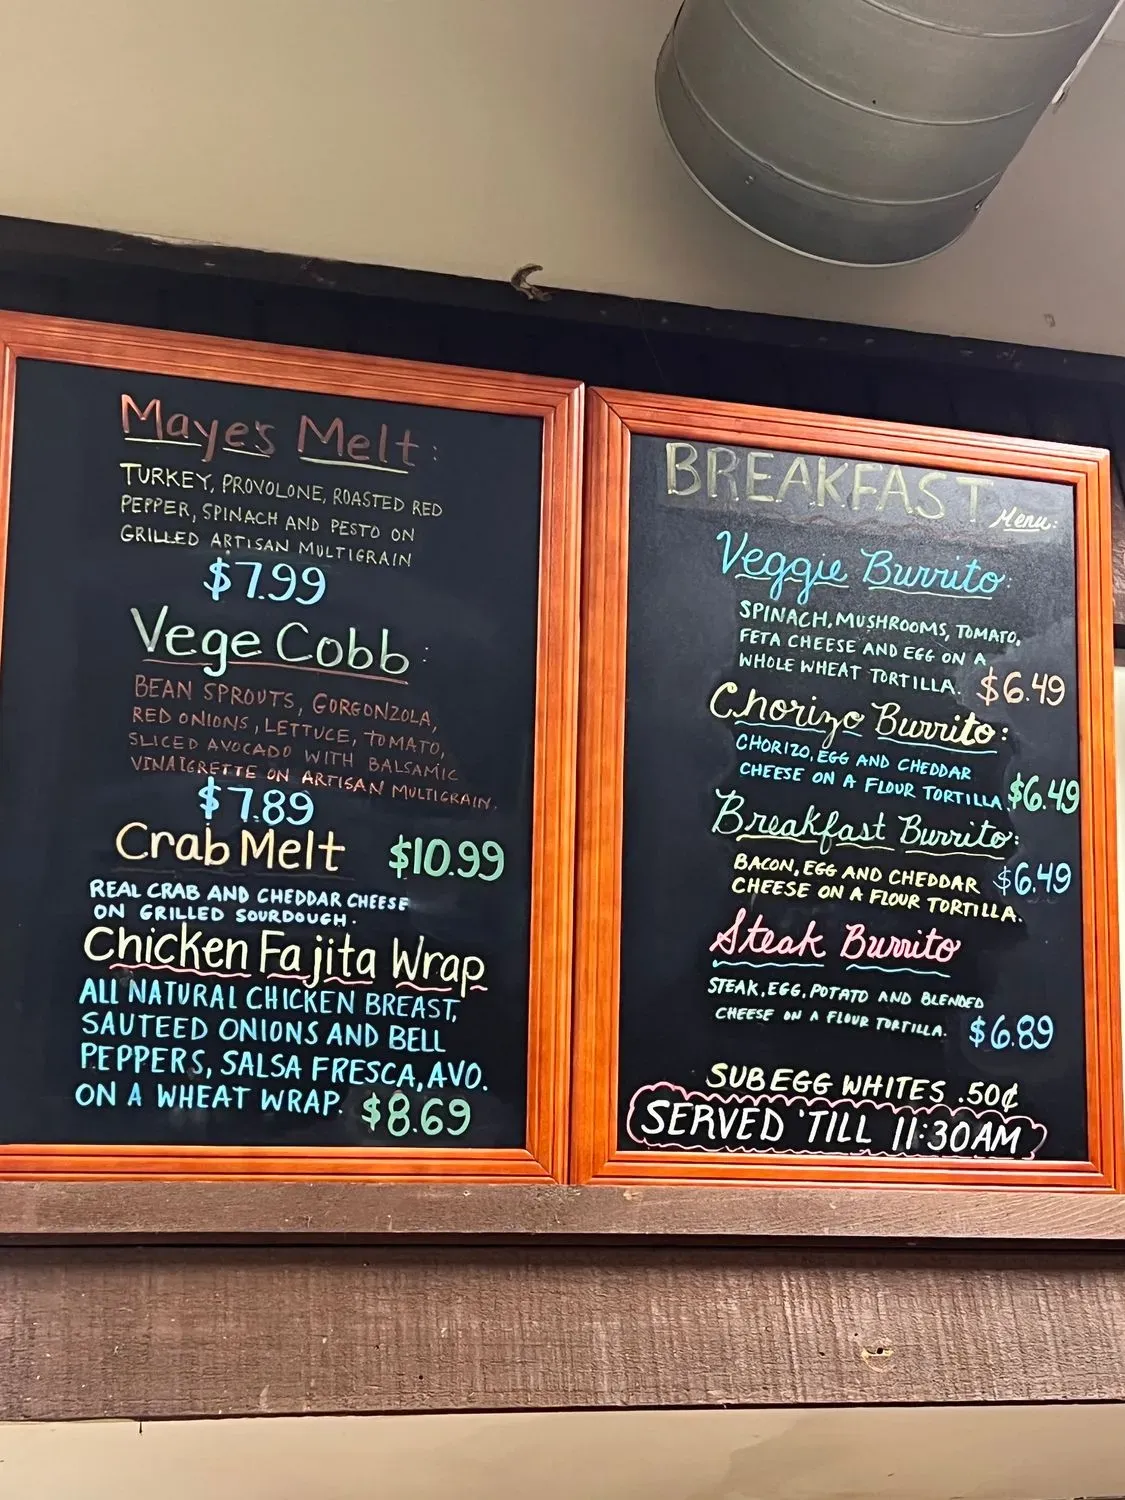 Maye's Melt:
TURKEY, PROVOLONE, ROASTED RED
PEPPER, SPINACH AND PESTO ON
GRILLED ARTISAN MULTIGRAIN
$7.99
Vege Cobb:
BEAN SPROUTS, GORGONZOLA,
RED ONIONS, LETTUCE, TOMATO,
SLICED AVOCADO WITH BALSAMIC
VINAIGRETTE ON ARTISAN MULTIGRAIN.
$7.89
Crab Melt $10.99
REAL CRAB AND CHEDDAR CHEESE
ON GRILLED SOURDOUGH.
Chicken Fajita Wrap
ALL NATURAL CHICKEN BREAST,
SAUTEED ONIONS AND BELL
PEPPERS, SALSA FRESCA, AVO.
ON A WHEAT WRAP. $8.69
BREAKFAST Menu:
Veggie Burrito:
SPINACH, MUSHROOMS, TOMATO,
FETA CHEESE AND EGG ON A
WHOLE WHEAT TORTILLA. $6.49
Chorizo Burrito:
CHORIZO, EGG AND CHEDDAR
CHEESE ON A FLOUR TORTILLA. $6.49
Breakfast Burrito:
BACON, EGG AND CHEDDAR $6.49
CHEESE ON A FLOUR TORTILLA.
Steak Burrito
STEAK, EGG, POTATO AND BLENDED
CHEESE ON A FLOUR TORTILLA. $6.89
SUB EGG WHITES .50¢
SERVED 'TILL 11:30AM